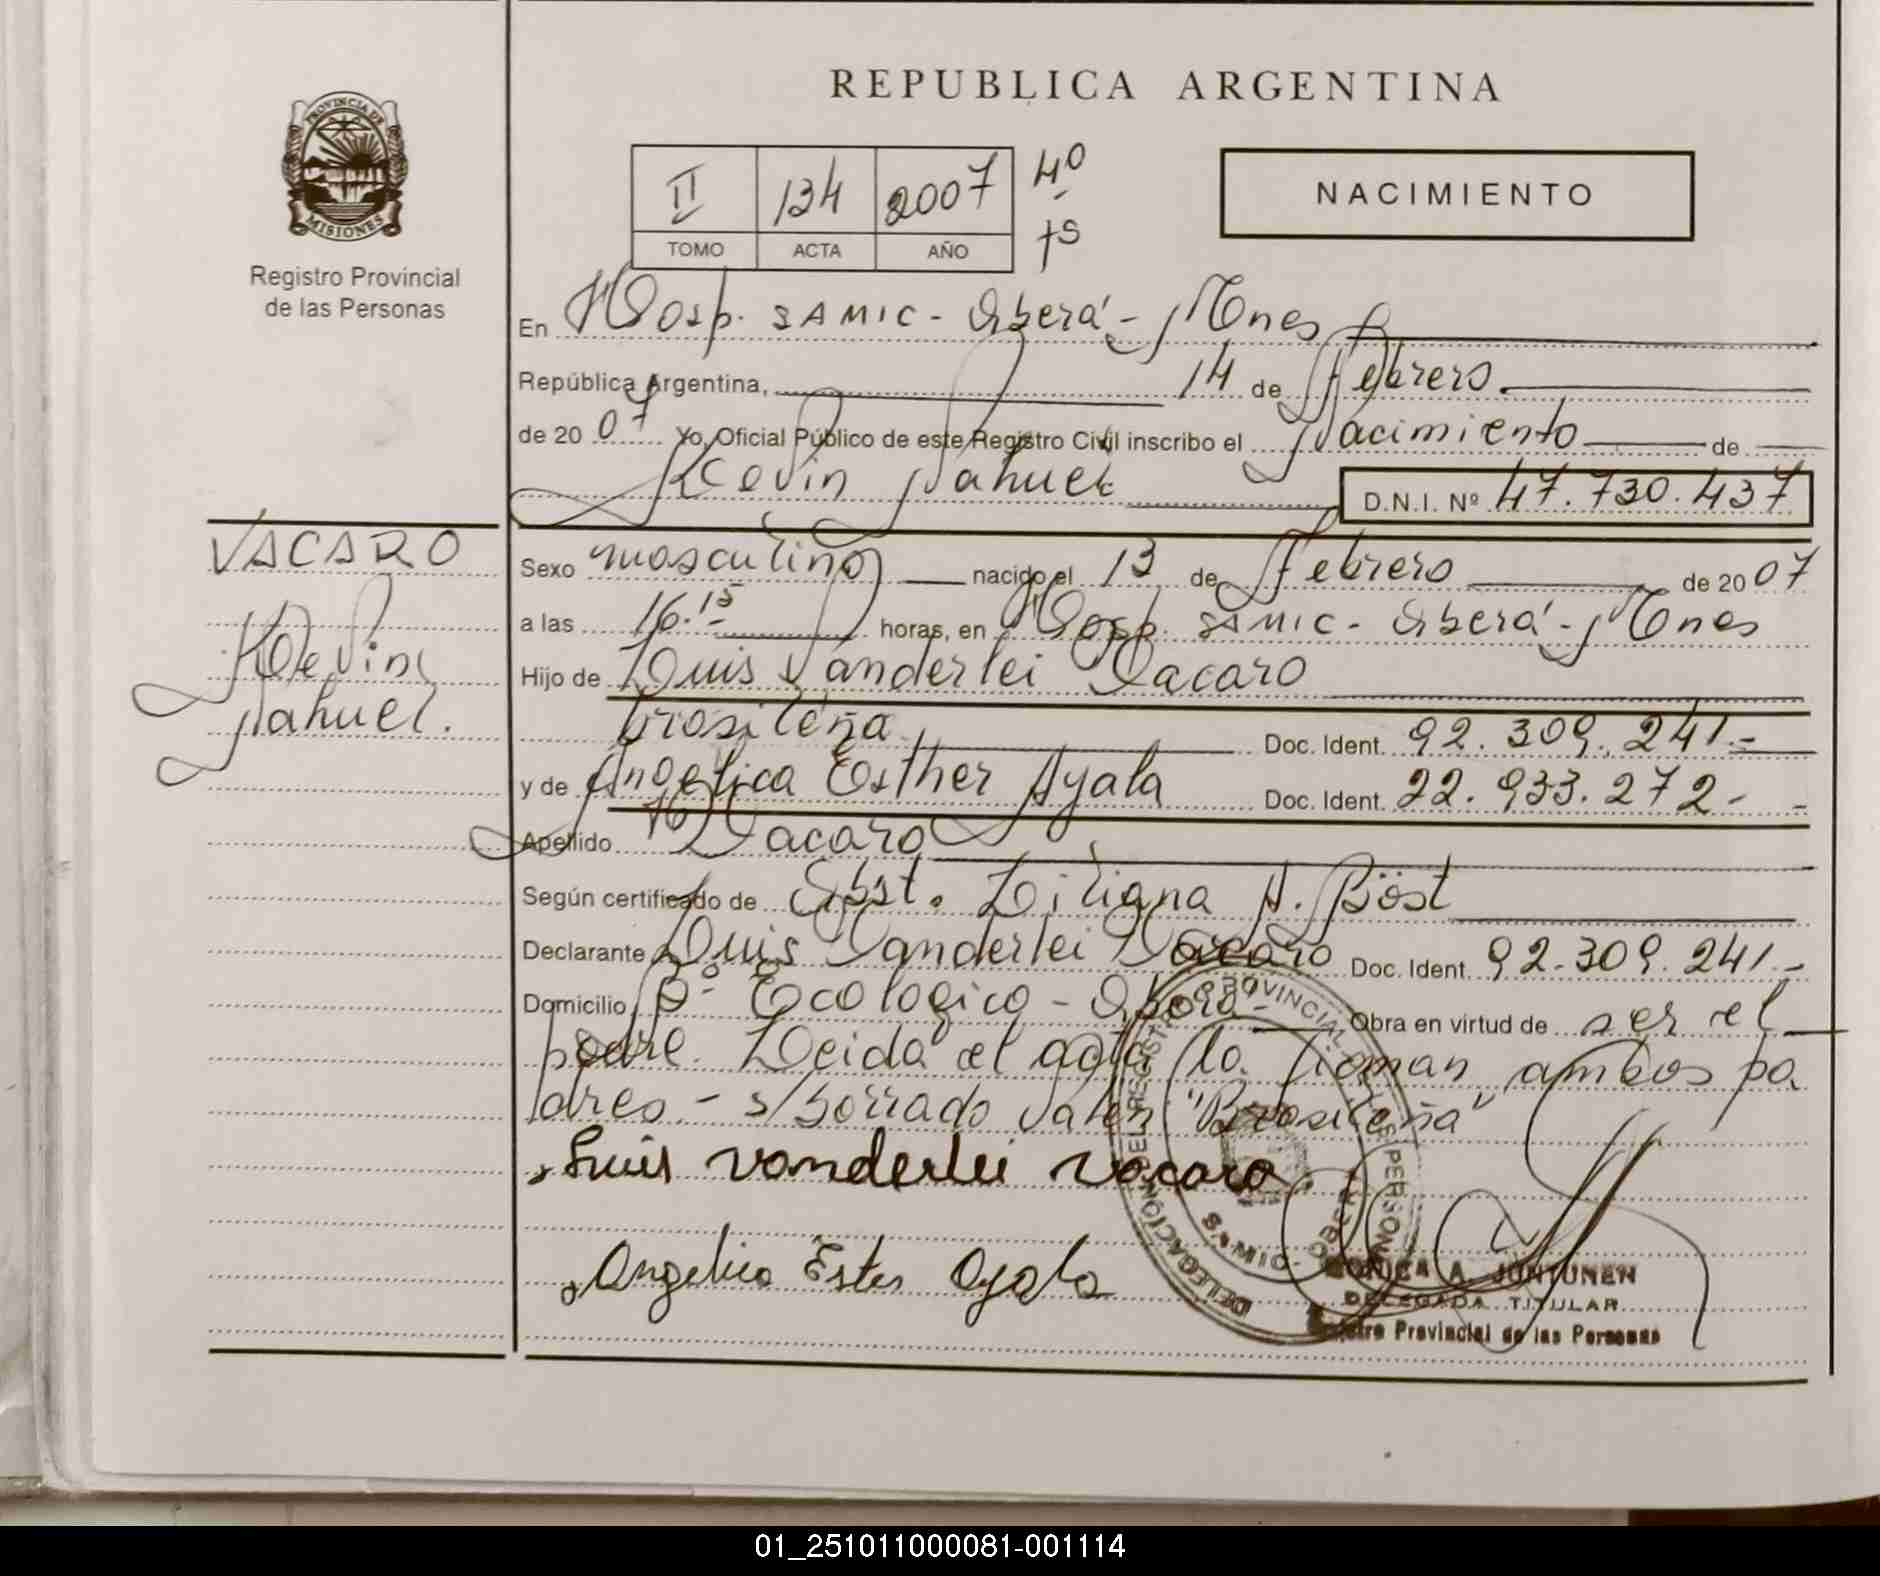 REPUBLICA ARGENTINA
PROVINCIA DE
MISIONES
Registro Provincial
de las Personas
II 134 2007 40
TOMO ACTA AÑO
NACIMIENTO
En Hosp. SAMIC - Oberá - Mnes
República Argentina, 14 de Febrero
de 20 07 Yo, Oficial Público de este Registro Civil inscribo el Nacimiento de
Kevin Nahuel D.N.I. Nº 47.730.437
VACARO
Kevin
Nahuel.
Sexo masculino nacido el 13 de Febrero de 20 07
a las 16.15 horas, en Hosp. SAMIC - Oberá - Mnes
Hijo de Luis Vanderlei Vacaro
brasileña Doc. Ident. 92.309.241.-
y de Angélica Esther Ayala Doc. Ident. 22.933.272-
Apellido Vacaro
Según certificado de Obst. Liliana H. Böst
Declarante Luis Vanderlei Vacaro Doc. Ident. 92.309.241.-
Domicilio Bº Ecologico - Oberá - Obra en virtud de ser el
padre. Leida el acta la firman ambos pa
dres - s/borrado valen "Brasileña"
Luis vanderlei vacaro
Angelica Ester Ayala
DELEGACIÓN DEL REGISTRO PROVINCIAL DE PERSONAS
SAMIC - OBERA
MONICA A. JUNTUNEN
DELEGADA TITULAR
Registro Provincial de las Personas
01_251011000081-001114